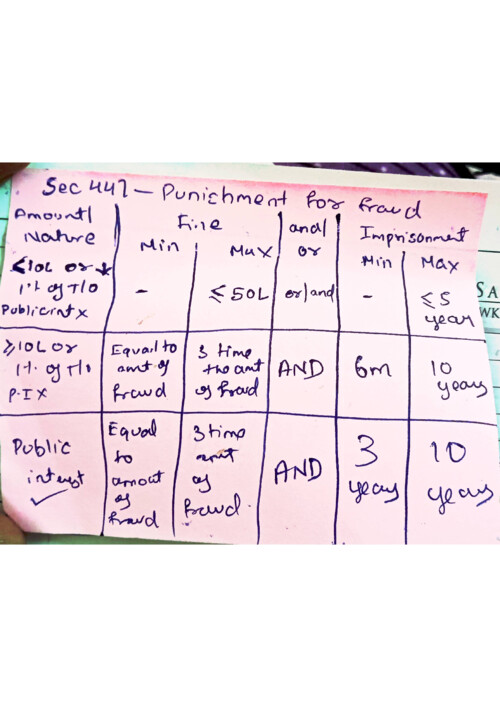 Sec 447 - Punichment for fraud
Amount/ Nature | Fine | and/ or | Imprisonment
Min | Max | Min | Max
<10L or * 1% of T/O Publicint X | - | ≤50L | or/and | - | ≤5 year
≥10L or 1% of T/O P.I X | Equal to amt of fraud | 3 time the amt of fraud | AND | 6m | 10 years
Public interest ✓ | Equal to amout of fraud | 3 time amt of fraud. | AND | 3 years | 10 years
SA
WK